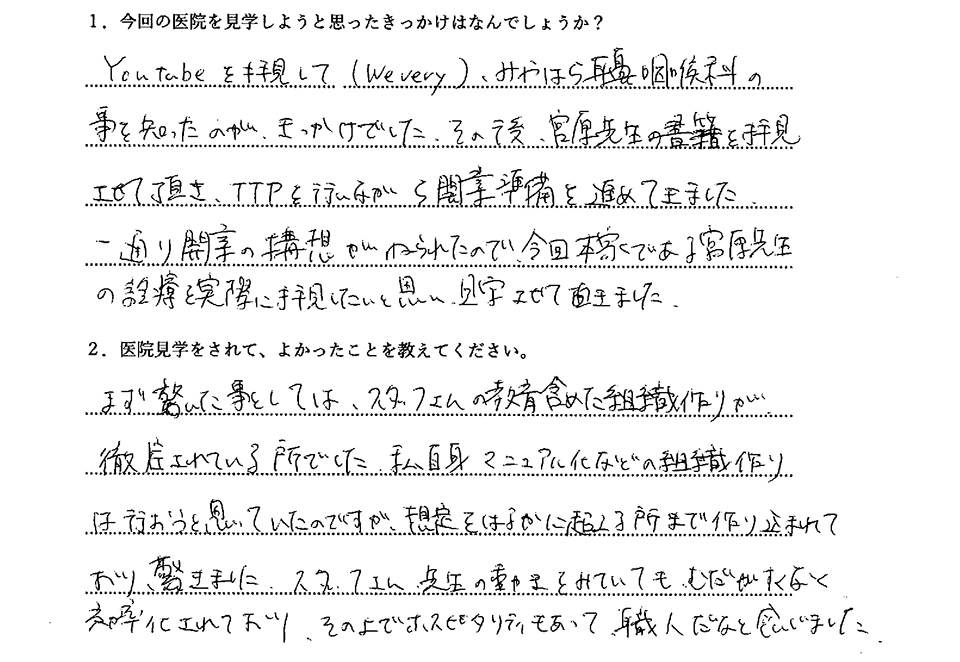 1．今回の医院を見学しようと思ったきっかけはなんでしょうか？
Youtubeを拝見して（Wevery）、みやはら耳鼻咽喉科の
事を知ったのが、きっかけでした。その後、宮原先生の書籍を拝見
させて頂き、TTPを行いながら開業準備を進めて来ました。
一通り開業の構想がねられたので、今回本家である宮原先生
の診療を実際に拝見したいと思い、見学させて頂きました。
2．医院見学をされて、よかったことを教えてください。
まず驚いた事としては、スタッフさんの教育含めた組織作りが、
徹底されている所でした。私自身マニュアル化などの組織作り
は行おうと思っていたのですが、想定をはるかに超える所まで作り込まれて
おり、驚きました。スタッフさん、先生の動きをみていても、むだがすくなく
効率化されており、その上でホスピタリティもあって、職人だなと感じました。